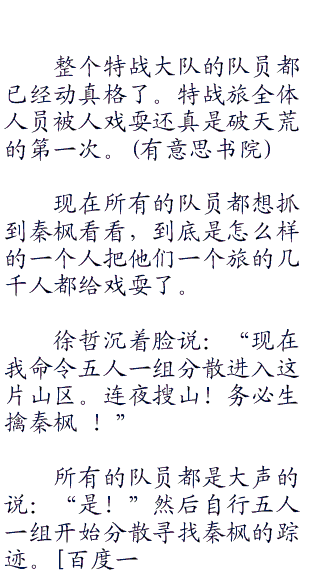 整个特战大队的队员都
已经动真格了。特战旅全体
人员被人戏耍还真是破天荒
的第一次。(有意思书院)
现在所有的队员都想抓
到秦枫看看，到底是怎么样
的一个人把他们一个旅的几
千人都给戏耍了。
徐哲沉着脸说：“现在
我命令五人一组分散进入这
片山区。连夜搜山！务必生
擒秦枫 ！”
所有的队员都是大声的
说：“是！”然后自行五人
一组开始分散寻找秦枫的踪
迹。[百度一